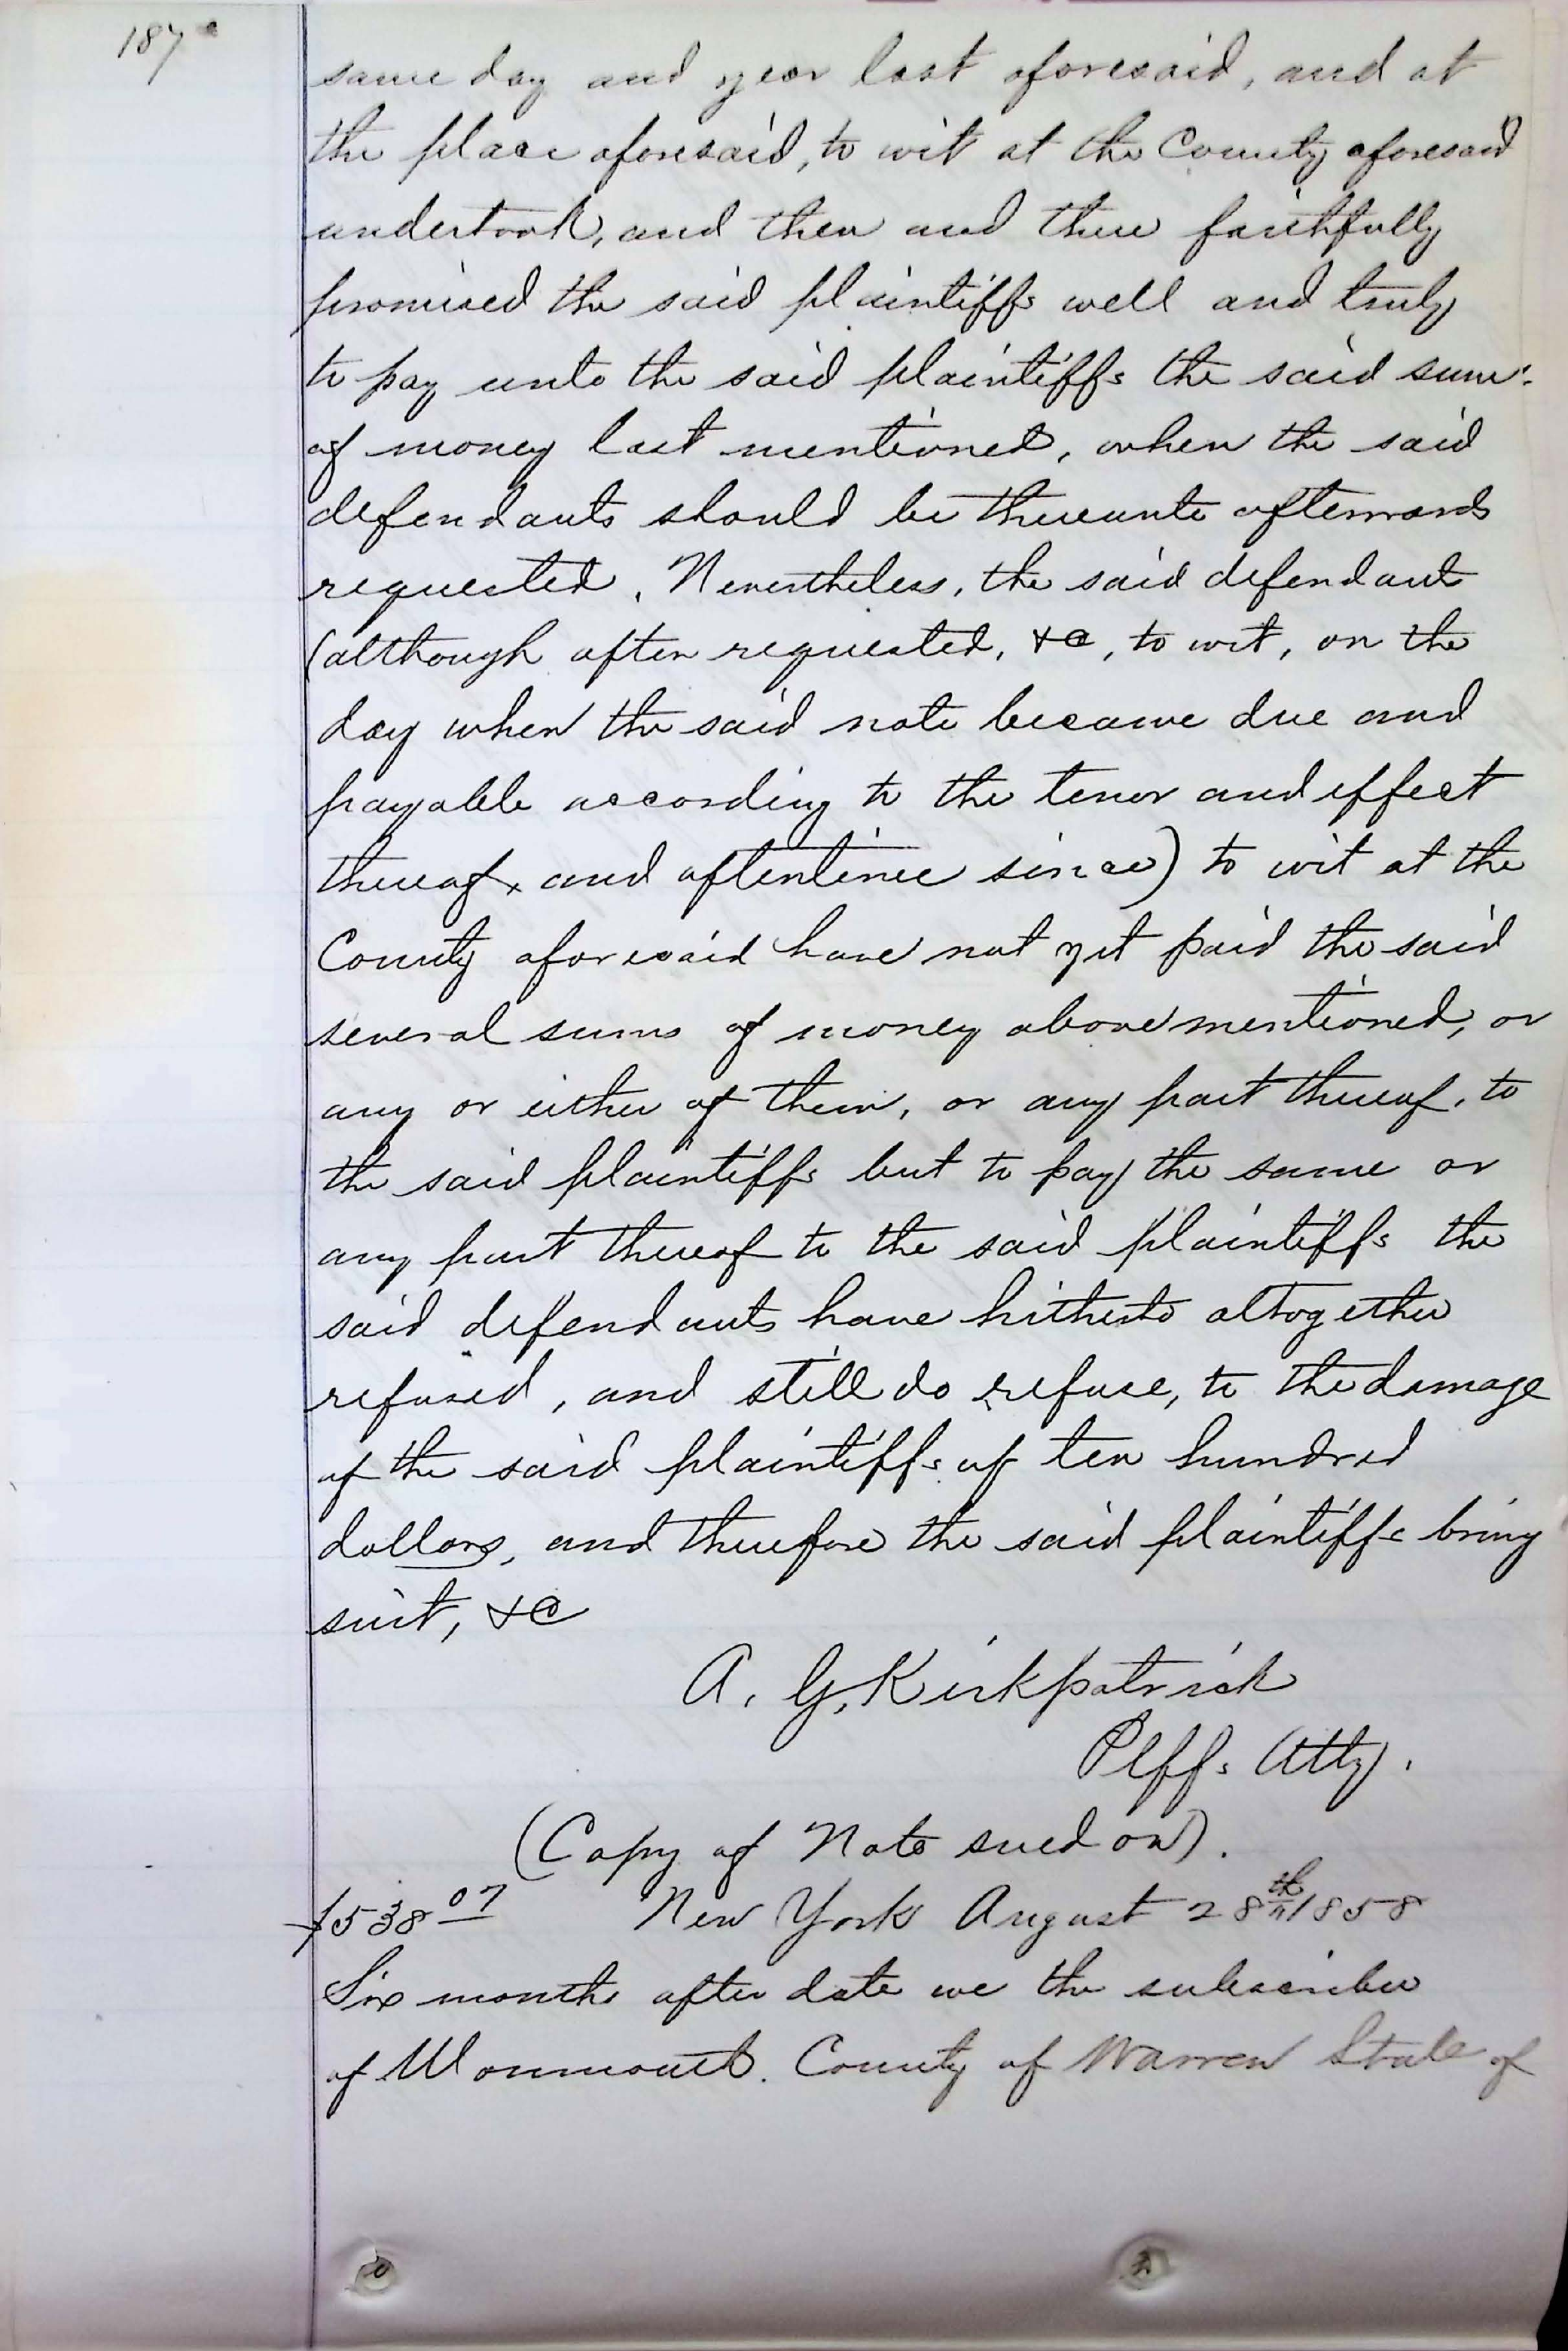 187
same day and year last aforesaid, and at
the place aforesaid, to wit at the County aforesaid
undertook, and then and there faithfully
promised the said plaintiffs well and truly
to pay unto the said plaintiffs the said sum
of money last mentioned, when the said
defendants should be thereunto afterwards
requested. Nevertheless, the said defendants
(although often requested, &c, to wit, on the
day when the said note became due and
payable according to the tenor and effect
thereof, and oftentimes since) to wit at the
County aforesaid have not yet paid the said
several sums of money above mentioned, or
any or either of them, or any part thereof, to
the said plaintiffs but to pay the same or
any part thereof to the said plaintiffs the
said defendants have hitherto altogether
refused, and still do refuse, to the damage
of the said plaintiffs of ten hundred
dollars, and therefore the said plaintiffs bring
suit, &c
A. G. Kirkpatrick
Plffs Atty.
(Copy of Note sued on).
$538 07 New York August 28th 1858
Six months after date we the subscriber
of Monmouth. County of Warren State of